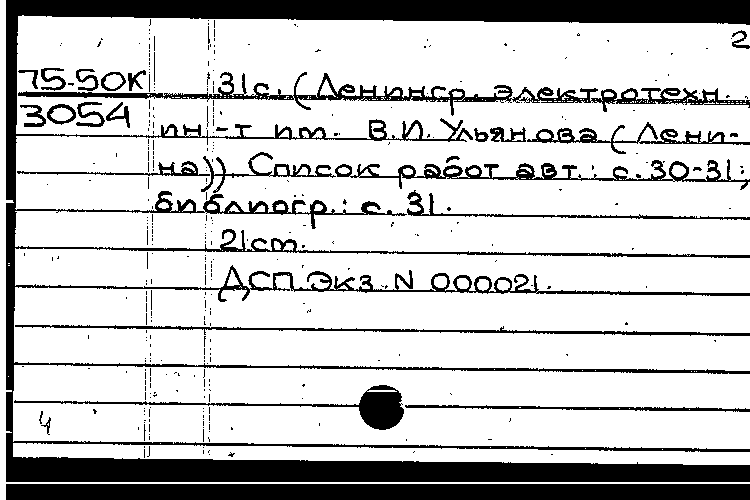 2
75-50К 31с. (Ленингр. электротехн.
3054
ин-т им. В.И. Ульянова (Лени-
на)). Список работ авт.: с. 30-31;
библиогр.: с. 31.
21см.
ДСП. Экз. N 000021.
4